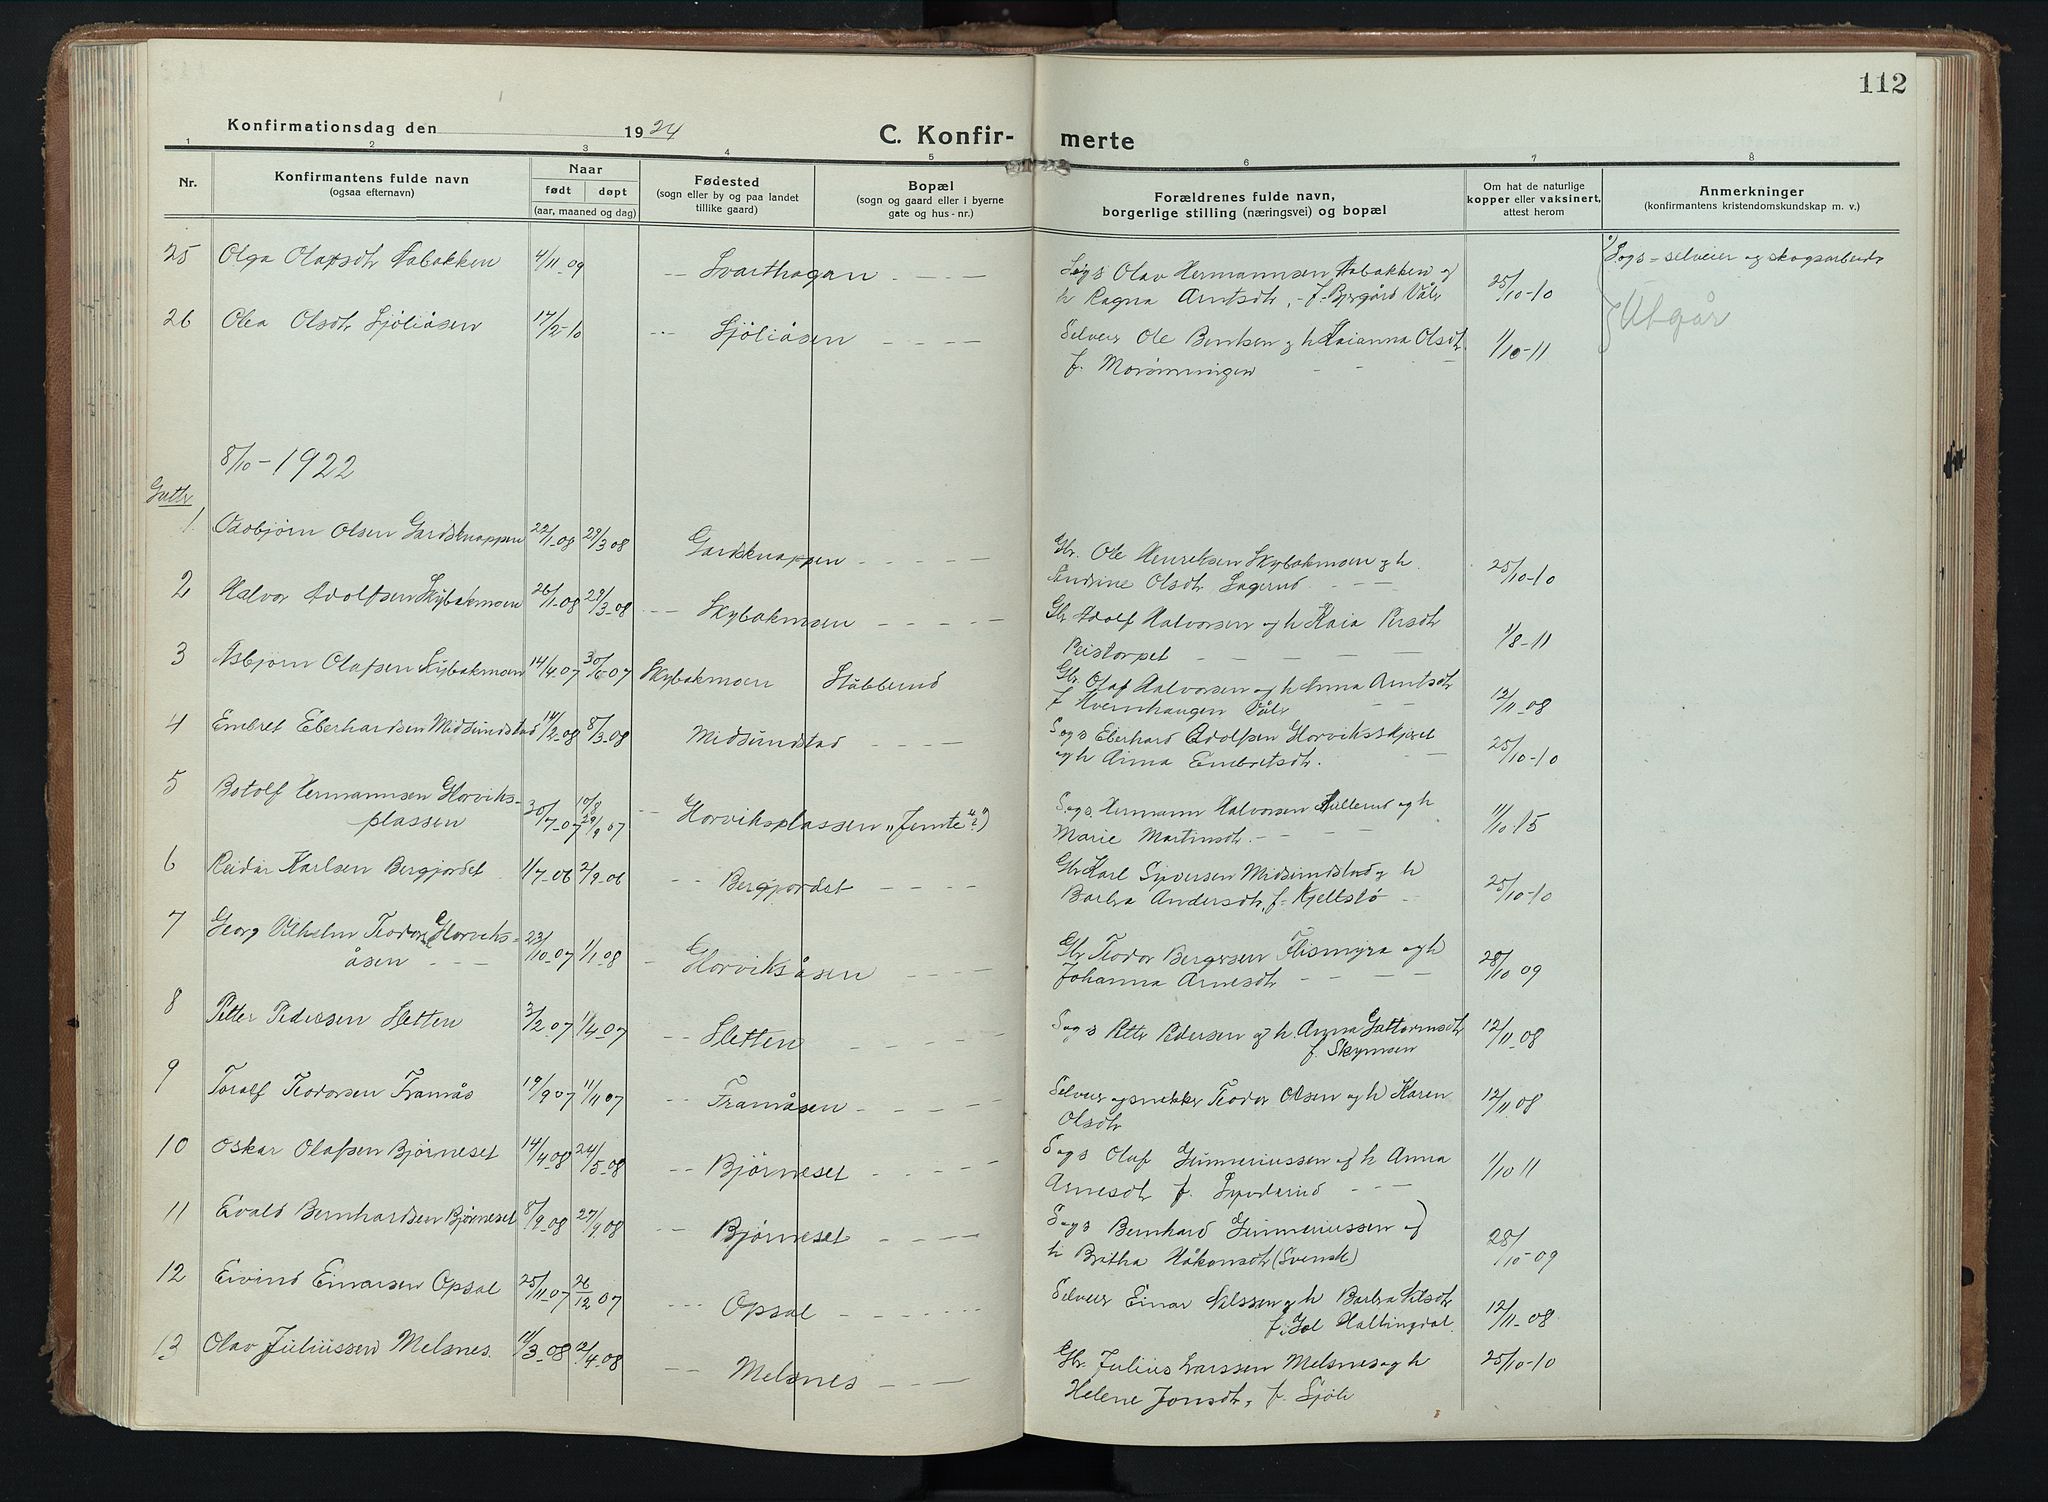 112
Konfirmationsdag den 1924
C. Konfir- merte
1 2 3 4 5 6 7 8
Nr.
Konfirmantens fulde navn
(ogsaa efternavn)
Naar
født døpt
(aar, maaned og dag)
Fødested
(sogn eller by og paa landet
tillike gaard)
Bopæl
(sogn og gaard eller i byerne
gate og hus-nr.)
Forældrenes fulde navn,
borgerlige stilling (næringsvei) og bopæl
Om hat de naturlige
kopper eller vaksinert,
attest herom
Anmerkninger
(konfirmantens kristendomskundskap m. v.)
25 Olga Olafsdtr Aabakken 4/11-09 -- Svarthagan - - - -
Sogs Olav Hermannsen Aabakken og
h Ragna Arntsdtr, f. Våler 25/10-10
Sogs = selveier og skogsarbeider
26 Olea Olsdtr Sjøliåsen 17/2-10 --- Sjøliåsen - - - -
Selveier Ole Bentsen og h Olsdtr
f. Morønningen - - - 1/10-11
Utgår
8/10-1922
Gutter
1 Oddbjørn Olsen Gardsknappen 22/1-08 29/3 08 Gardknappen - - - - -
Gbr. Ole Henriksen Skybakmoen og h.
Andrine Olsdtr Lagerud - - - 25/10-10
2 Halvor Adolfsen Skybakmoen 26/1-08 29/3-08 -- Skybakmoen - - - - -
Gbr Adolf Halvorsen og h Kaia Persdtr
Reistorpet - - - - - 1/8-11
3 Asbjørn Olafsen Skybakmoen 14/4-07 30/6-07 Skybakmoen Stubberud
Gbr. Olaf Halvorsen og h Anna Arntsdtr
f Hvernhaugen Våler - - 12/11-08
4 Embret Eberhardsen Midtsundstad 14/2-08 8/3-08 Midtsundstad - - - -
Sogs Eberhard Adolfsen Horvikskjæret
og h Anna Embretsdtr. - 25/10-10
5 Botolf Hermannsen Horviks-
plassen 30/7-07 10/8 29/9 07 -- Horviksplassen „Jemte"?)
Sogs. Hermann Halvorsen og h
Marie Martinsdtr. - - - - 11/10-15
6 Reidar Karlsen Bergjordet 1/7-06 2/9-06 -- Bergjordet - - - -
Gbr Karl Syversen Midtsundstad og h
Barbra Andersdtr, f. Kjellstø - 25/10-10
7 Georg Vilhelm Teodors. Horviks-
åsen - - - 23/10-07 1/1-08 - Horviksåsen - - - -
Gbr Teodor Bergersen Flismyra og h
Johanna Arnesdtr - - - - 28/10 09
8 Petter Pedersen Sletten 3/2-07 1/4-07 -- Sletten - - - - -
Sogs Petter Pedersen og h. Anna Guttormsdtr
f. Skymoen 12/11-08
9 Toralf Teodorsen Framås 19/9 07 11/11 07 -- Framåsen - - - -
Selveier og snekker Teodor Olsen og h Karen
Olsdtr 12/11 08
10 Oskar Olafsen Bjørneset 14/4-08 24/5-08 -- Bjørneset - - - - -
Sogs Olaf Gunneriussen og h Anna
Arnesdtr f. Syvderud - - - 1/10 11
11 Evald Bernhardsen Bjørneset 8/9-08 27/9 08 -- Bjørneset - - - -
Sogs Bernhard Gunneriussen og
h Britha Håkonsdtr (Svensk) 28/10-09
12 Eivind Einarsen Opsal 25/11-07 26/12 07 --- Opsal - - - - -
Selveier Einar Nilssen og h Barbra Nilsdtr
f. i Gol Hallingdal 12/11-08
13 Olav Juliussen Melsnes. 11/3-08 12/4-08 -- Melsnes - - - -
Gbr. Julius Larssen Melsnes og h
Helene Jonsdtr, f. Sjøli 25/10-10